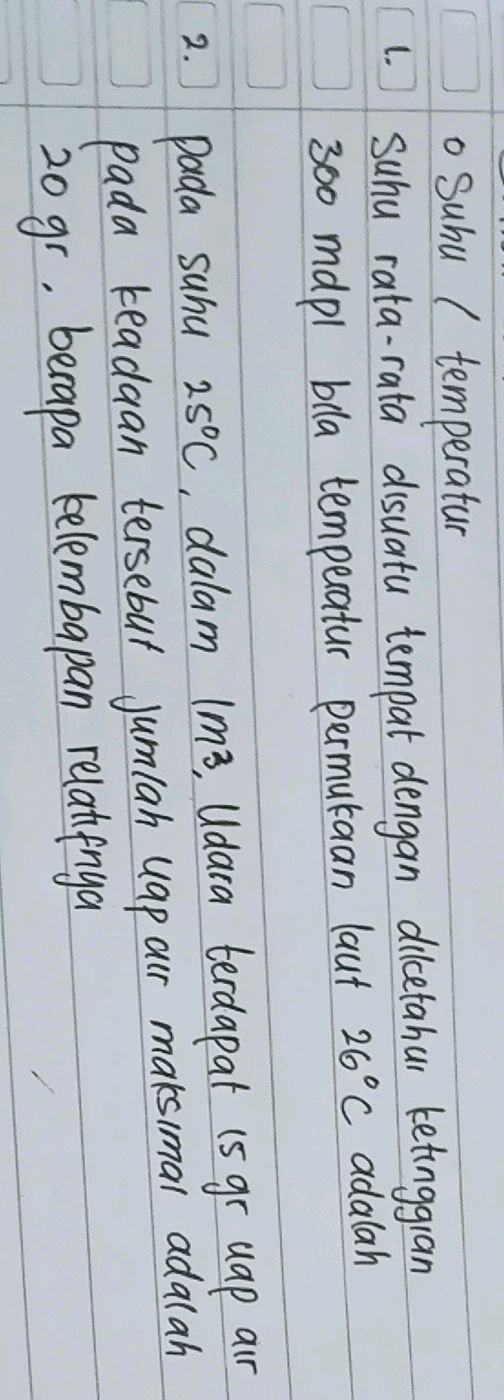 o Suhu / temperatur
1. Suhu rata-rata disuatu tempat dengan diketahui ketinggian
300 mdpl bila temperatur permukaan laut 26°C adalah
2. pada suhu 25°C, dalam 1m³, Udara terdapat 15 gr uap air
pada keadaan tersebut jumlah uap air maksimal adalah
20 gr, berapa kelembapan relatifnya